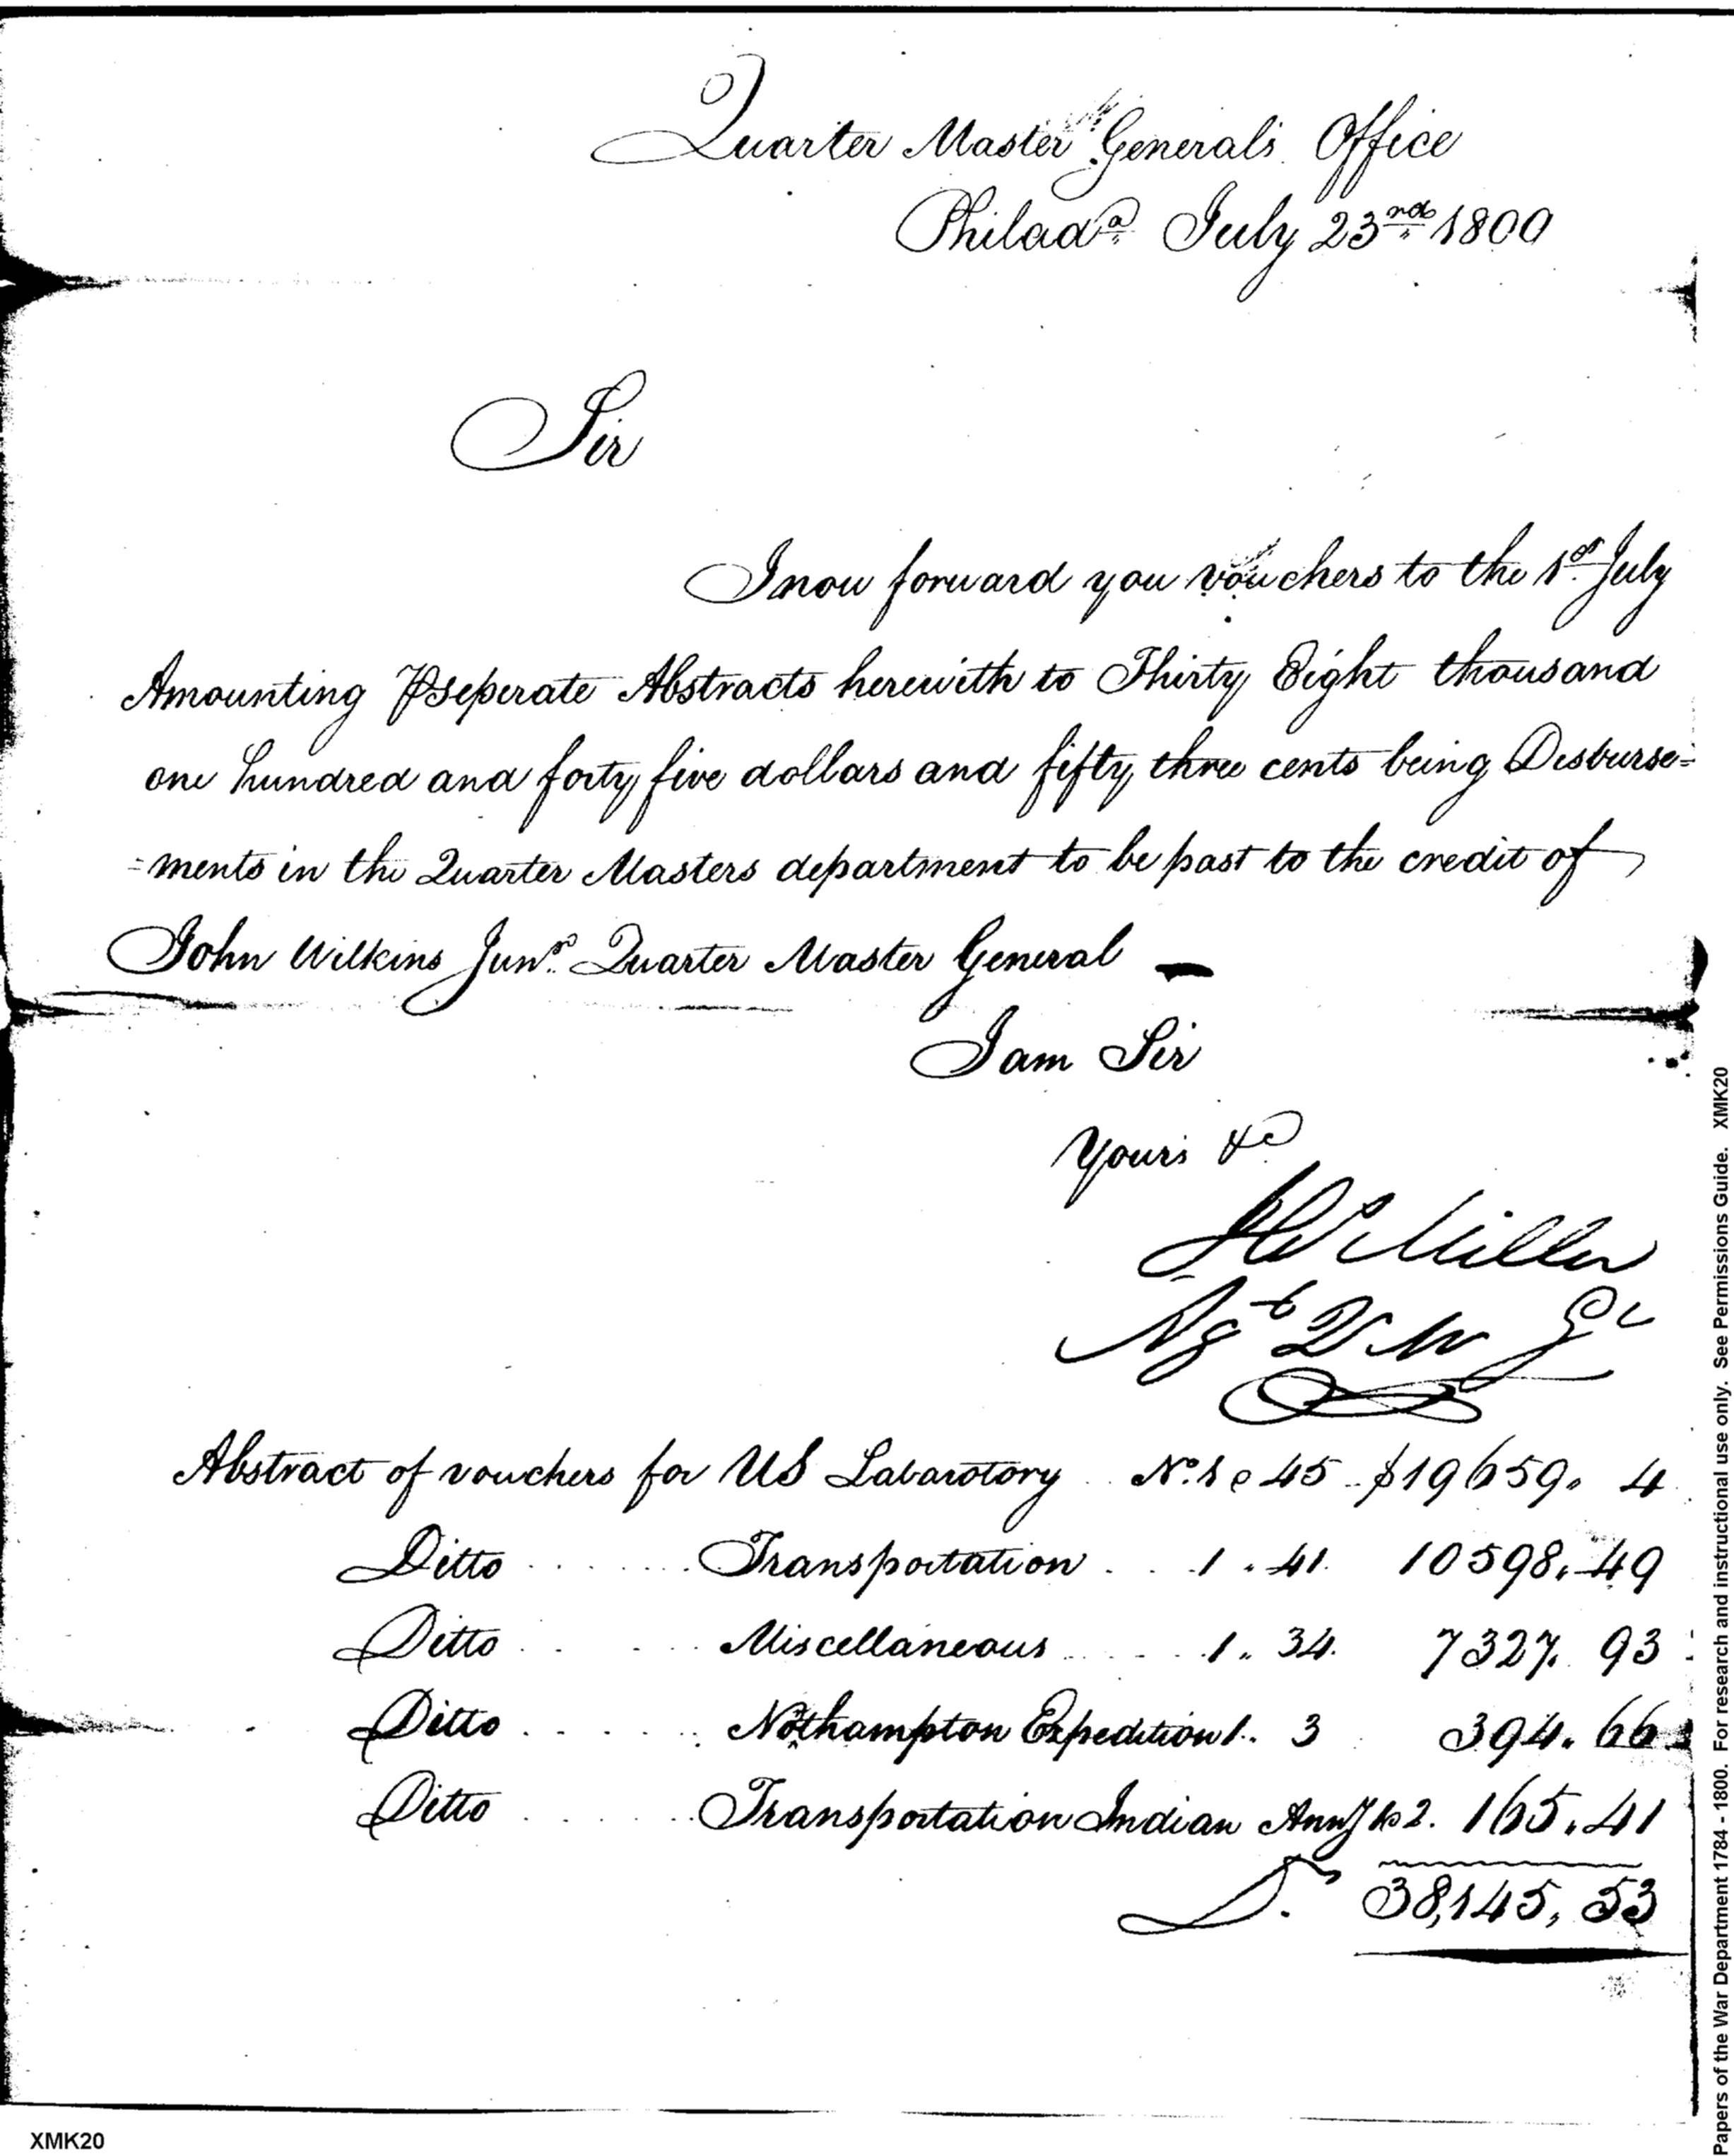 Quarter Master General's Office
Philada July 23rd 1800
Sir
I now forward you vouchers to the 1st July
Amounting ⅌ seperate Abstracts herewith to Thirty Eight thousand
one hundred and forty five dollars and fifty three cents being Disburse=
=ments in the Quarter Masters department to be past to the credit of
John Wilkins Junr. Quarter Master General
I am Sir
Yours &c
H Miller
Agt Q M Gl
Abstract of vouchers for US Labarotory No. 1 @ 45 $19659. 4
Ditto Transportation 1 " 41. 10598. 49
Ditto Miscellaneous 1 " 34. 7327. 93
Ditto Nothampton Expedition 1 " 3 394. 66
Ditto Transportation Indian 2. 165. 41
38,145, 53
XMK20
Papers of the War Department 1784 - 1800. For research and instructional use only. See Permissions Guide. XMK20